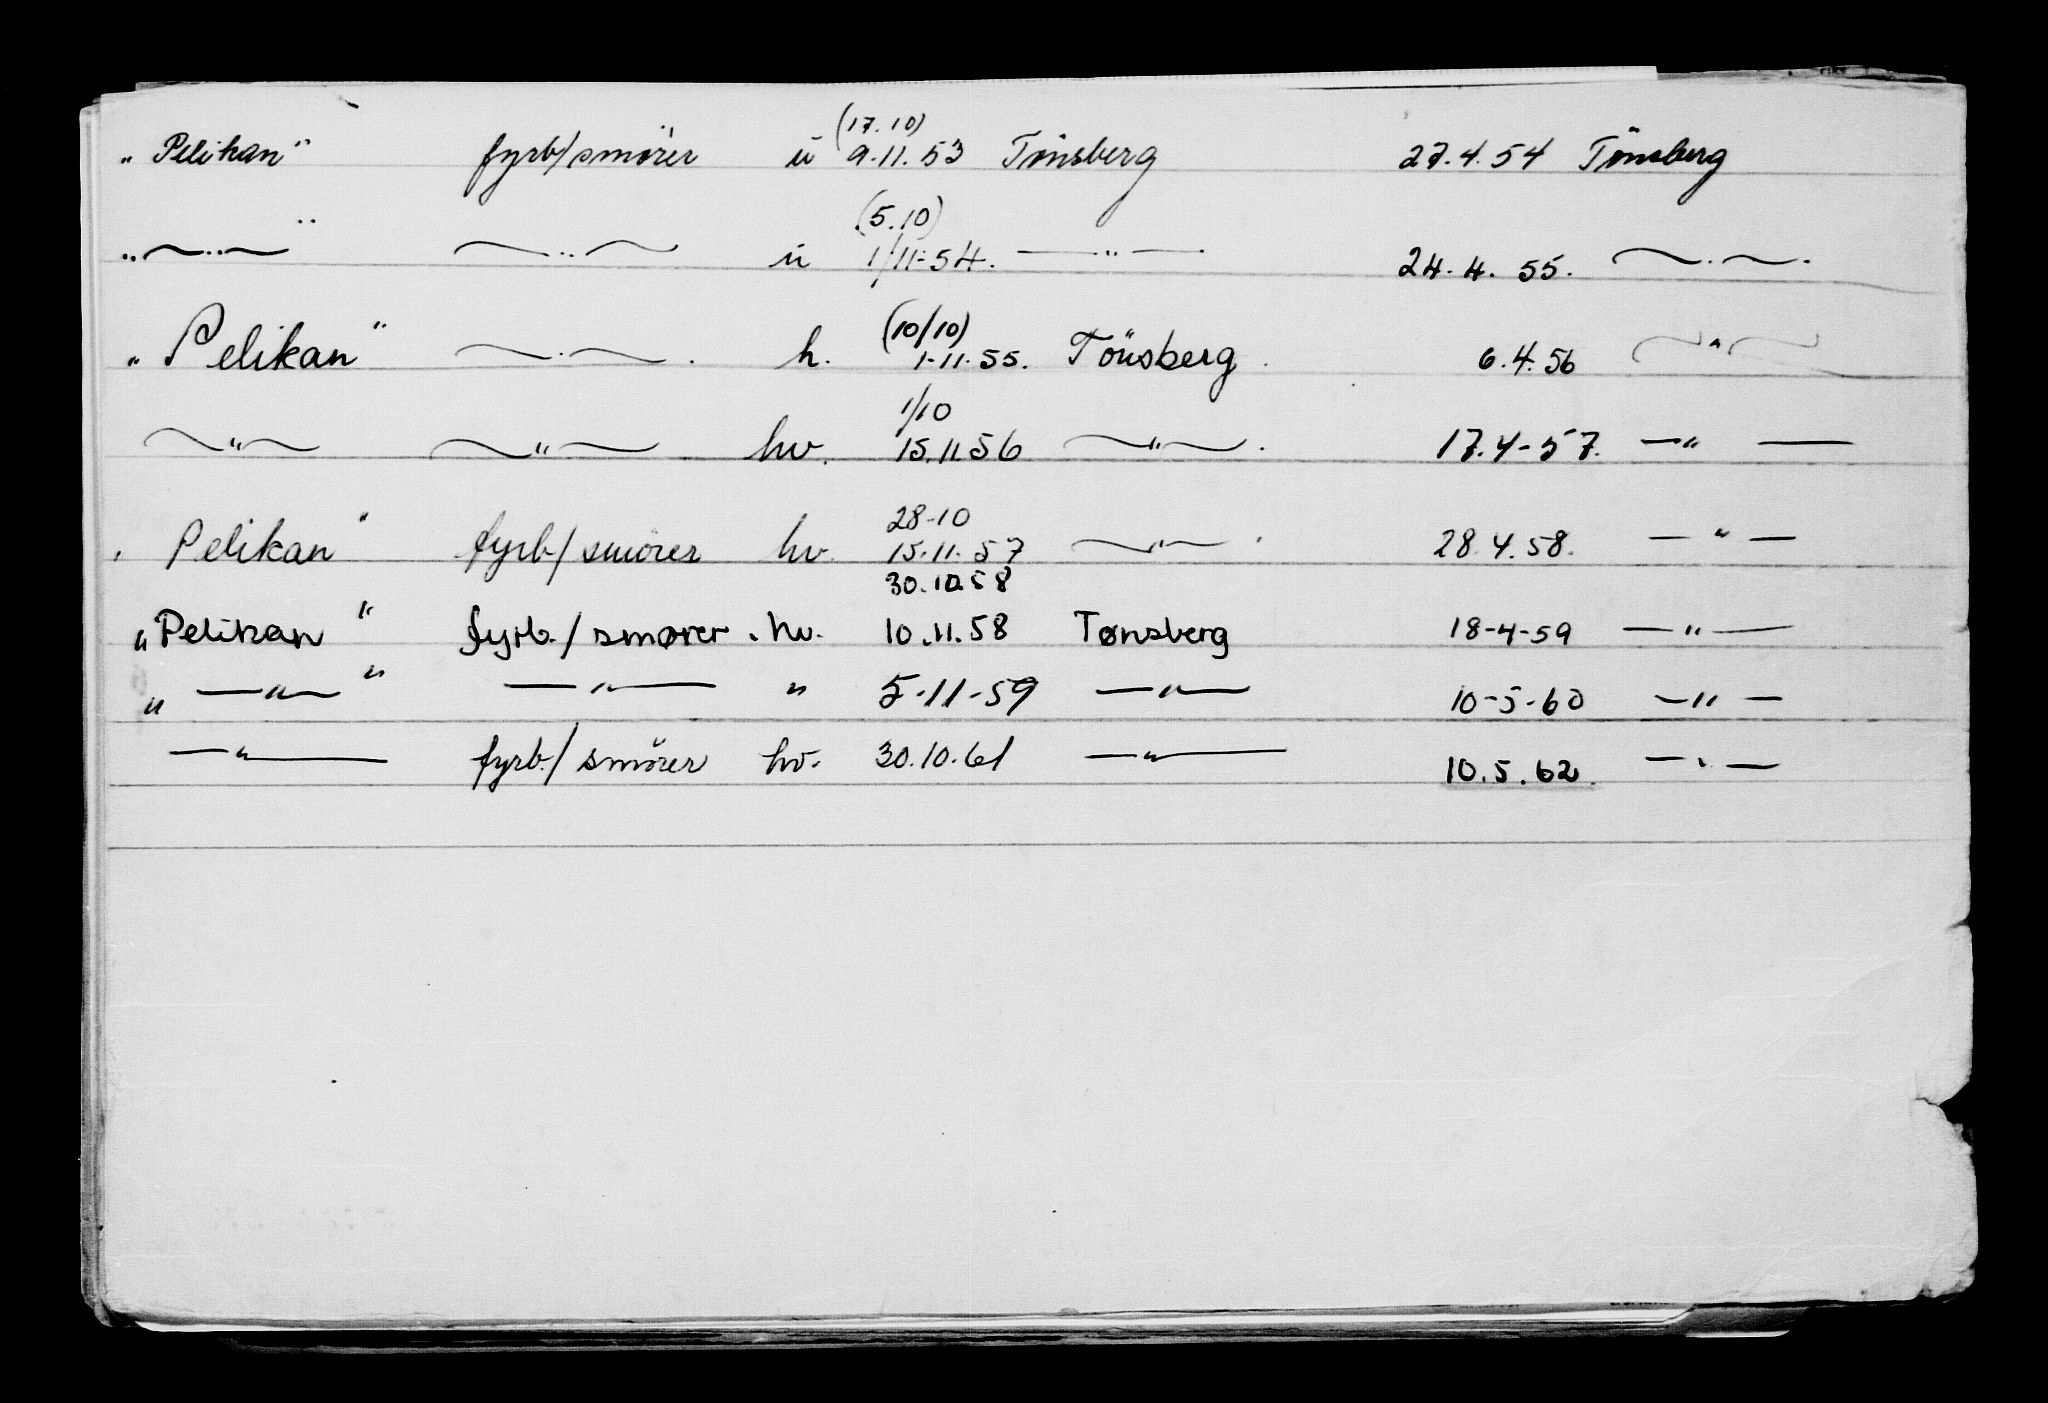 (17.10)
„ Pelikan" fyrb/smører u 9.11.53 Tønsberg 27.4.54 Tönsberg
(5.10)
„ —„— " —„— u 1/11-54. —„— 24.4.55. —„—
(10/10)
„ Pelikan" —„— h. 1-11-55. Tönsberg 6.4.56 —„—
1/10
—„— —„— hv. 15.11.56 —„— 17.4-57. —„—
28-10
Pelikan" fyrb/smörer hv. 15.11.57 —„— 28.4.58. —„—
30.10.58
„Pelikan" fyrb./smører. hv. 10.11.58 Tønsberg 18-4-59 —„—
„ —„— " —„— „ 5-11-59 —„— 10-5-60 —„—
—„— fyrb./smörer hv. 30.10.61 —„— 10.5.62. —„—